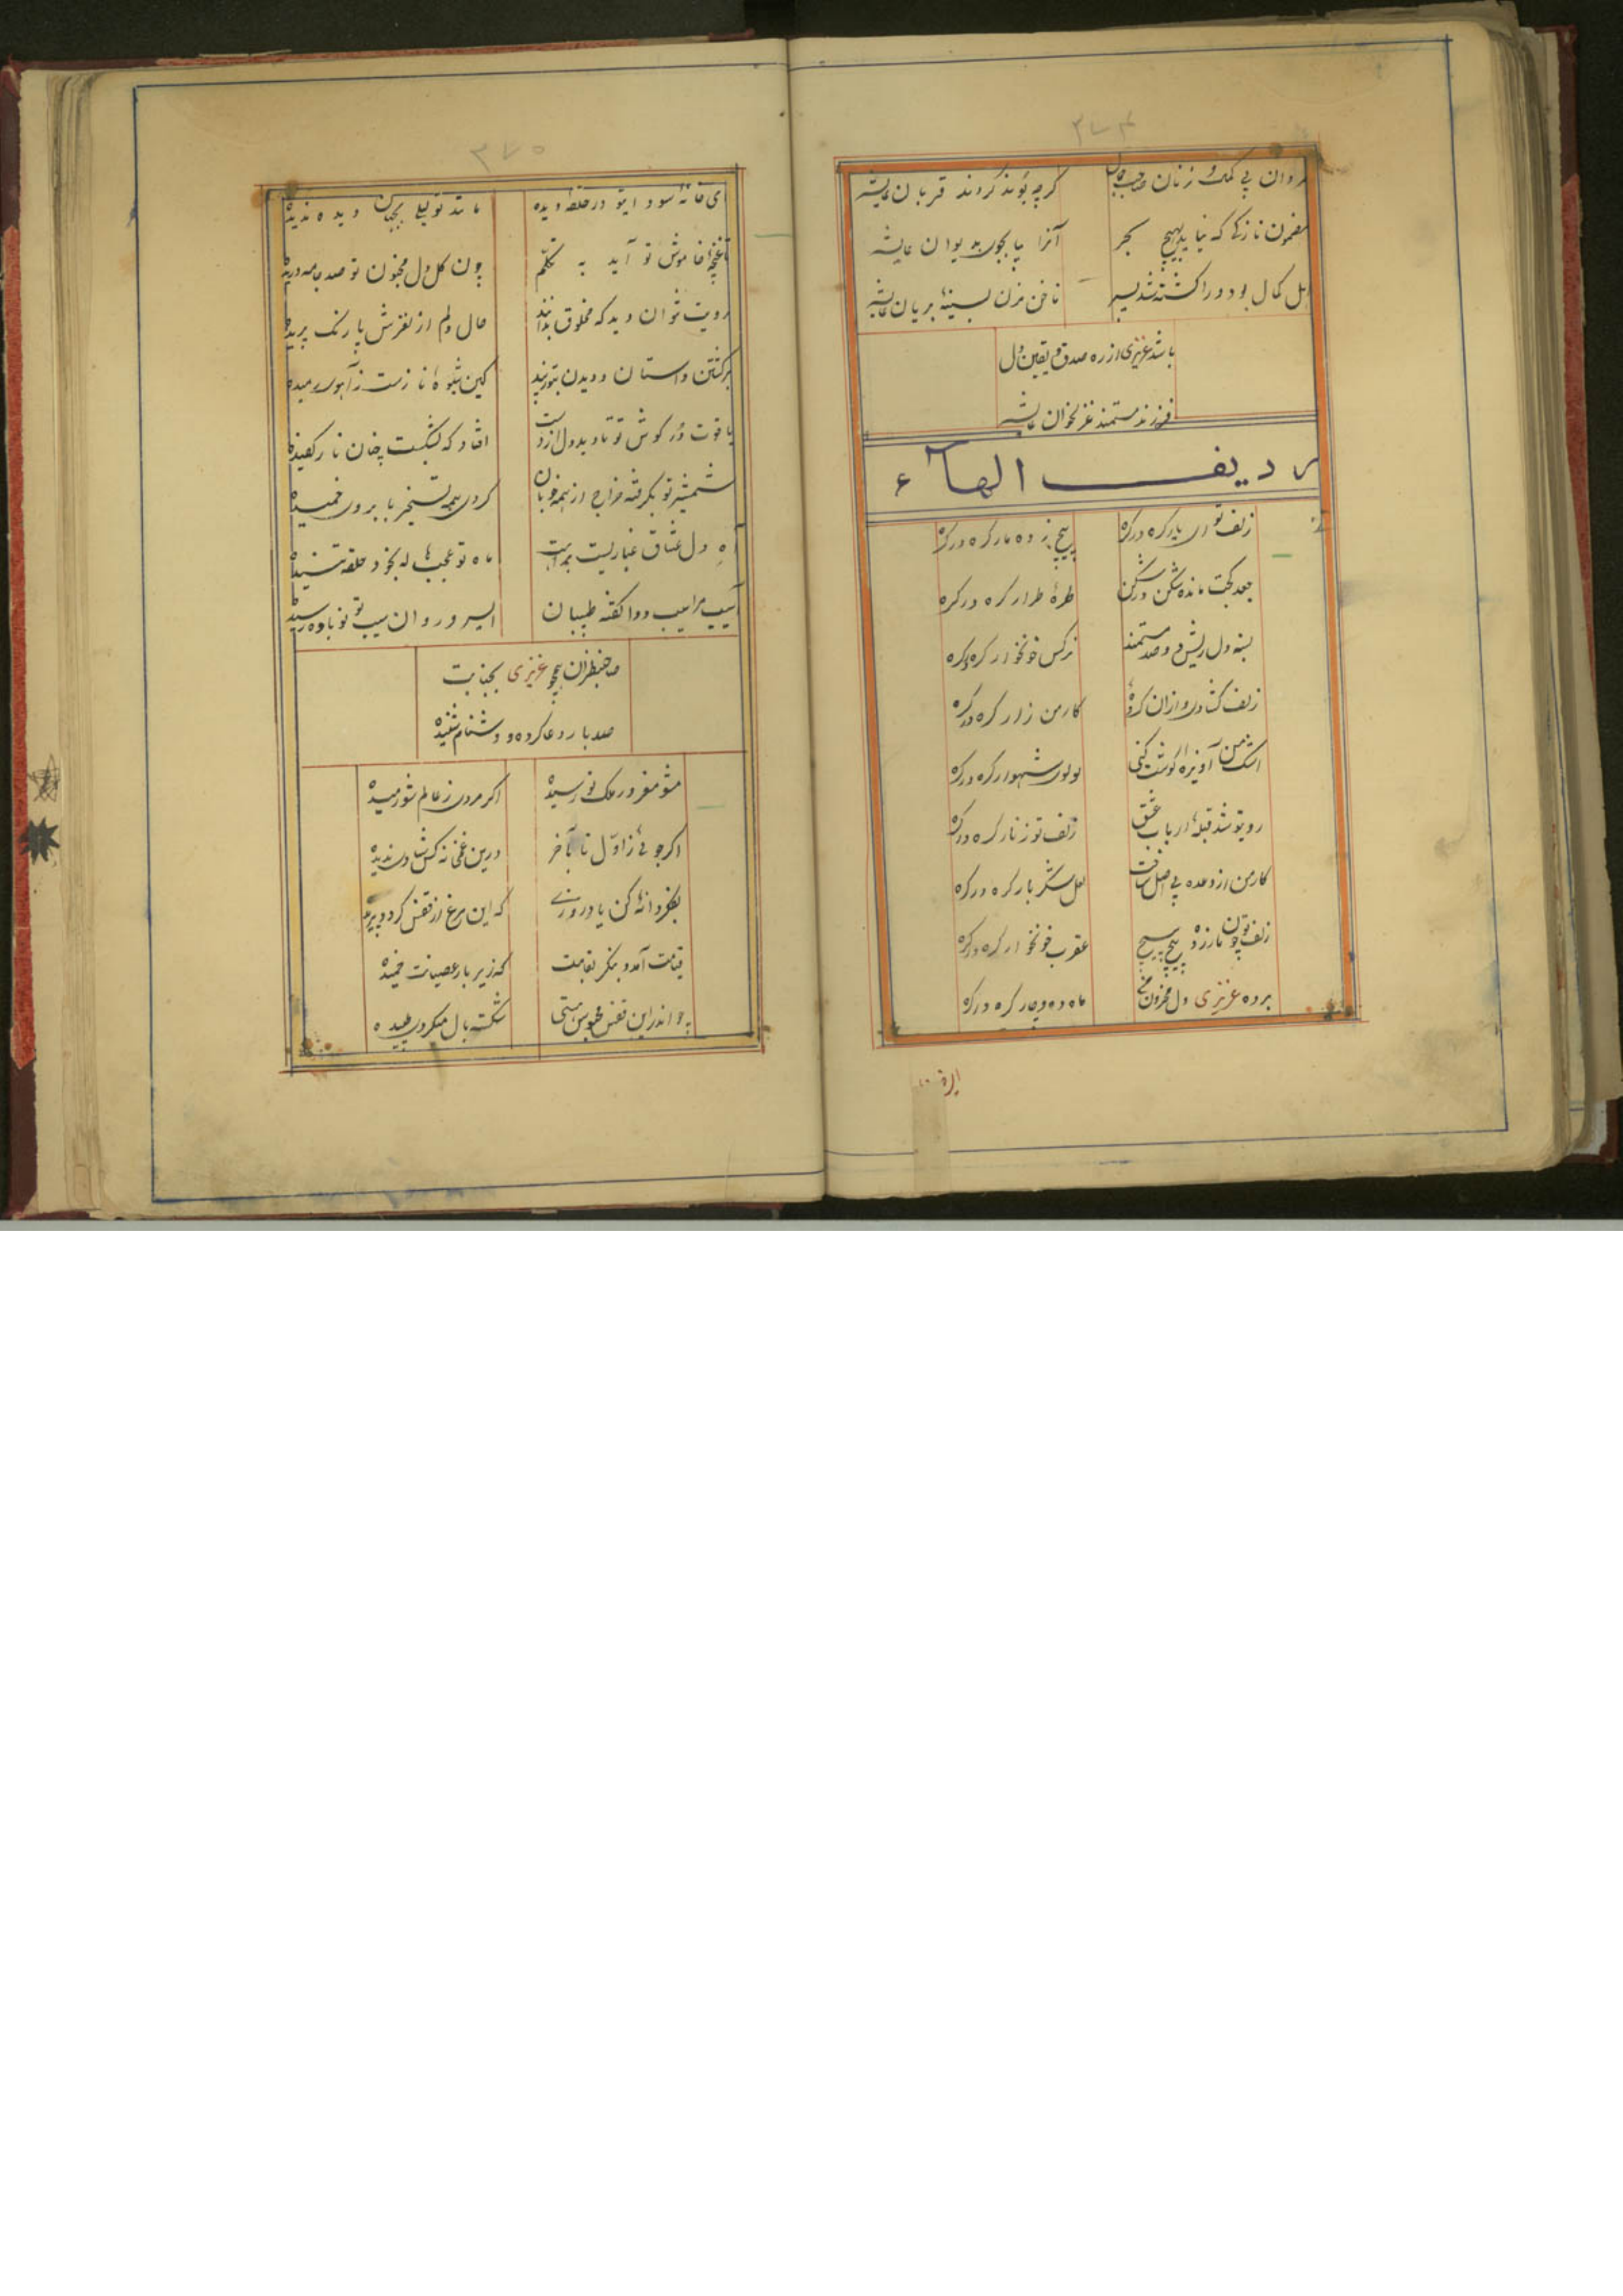 ۳۷۴
مردان بی کمک و زنان صاحب جمال
گرچه بُوند گروند قربان عایشه
مضمون نازکی که نیاید بهیچ بحر
آنرا بیا بجوی بدیوان عایشه
اهل کمال بود ورا کشته شد پسر
ناخن مزن بسینهٔ بریان عایشه
باشد عزیزی از ره صدق و یقین و دل
فرزند مستمند غزلخوان عایشه
ردیف الهاء
زلف تو ای یار گره در گره
پیچ زده مار گره در گره
جعد کجت مانده شکن در شکن
طرهٔ طرار گره در گره
بسته دل ریش دو صد مستمند
نرگس خونخوار گره در گره
زلف گشادی و ازان کردهٔ
کار من زار گره در گره
اشک من آویزهٔ گوشت کنی
لولوی شهوار گره در گره
روی تو شد قبلهٔ ارباب عشق
زلف تو زنار گره در گره
کار من از وعده بی اصل ساخت
لعل شکر بار گره در گره
زلف تو چون مار زده پیچ پیچ
عقرب خونخوار گره در گره
برده عزیزی دل محزون
ماه ده و چار گره در گره
۳۷۵
ای خانهٔ سودای تو در حلقهٔ دیده
مانند تو لیلی بجهان دیده ندیده
تا غنچهٔ خاموش تو آید به تکلّم
چون گل دل مجنون تو صد جامه دریده
رویت نتوان دید که مخلوق بدانند
حال دلم از لغزش پا رنگ پریده
برگشتن و استان و دویدن بتو زیبد
کین شیوهٔ نازست ز آهوی رمیده
یاقوت دُر گوش تو تا دید دل از دست
افتاد که بشکست چنان نار کفیده
شمشیر تو بگرفته خراج از همه خوبان
کردی همه تسخیر بابروی خمیده
آه دل عشاق غباریست
ماه تو عجب هاله بخود حلقه تنیده
آسیب مرا سیب دوا گفته طبیبان
ای سرو روان سیب تو نوباوه رسیده
صاحبنظران همچو عزیزی بجنابت
صد بار دعا کرده و دشنام شنیده
مشو مغرور ملک نو رسیده
اگر مردی ز عالم شو رمیده
اگر جوئی ز اوّل تا بآخر
درین غمخانه کس شادی ندیده
بفکر دانه کن یاد روزی
که این مرغ از قفس گردد پریده
قیامت آمد و بنگر بقامت
که زیر بار عصیانت خمیده
چو اندر این قفس محبوس هستی
شکسته بال میگردی طپیده